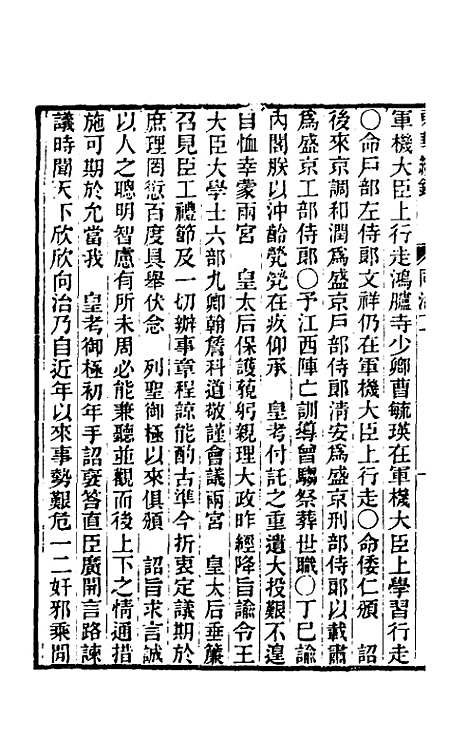 軍機大臣上行走鴻臚寺少卿曹毓瑛在軍機大臣上學習行走
○命戶部左侍郎文祥仍在軍機大臣上行走○命倭仁頒　詔
後來京調和潤爲盛京戶部侍郎清安爲盛京刑部侍郎以載肅
爲盛京工部侍郎○予江西陣亡訓導曾騶祭葬世職○丁巳諭
內閣朕以沖齡煢煢在疚仰承　皇考付託之重遺大投艱不遑
自恤幸蒙兩宮　皇太后保護藐躬親理大政昨經降旨諭令王
大臣大學士六部九卿翰詹科道敬謹會議兩宮　皇太后垂簾
召見臣工禮節及一切辦事章程諒能酌古準今折衷定議期於
庶理罔愆百度具舉伏念　列聖御極以來俱頒　詔旨求言誠
以人之聰明智慮有所未周必能兼聽並觀而後上下之情通措
施可期於允當我　皇考御極初年手詔褒答直臣廣開言路諫
議時聞天下欣欣向治乃自近年以來事勢艱危一二奸邪乘閒